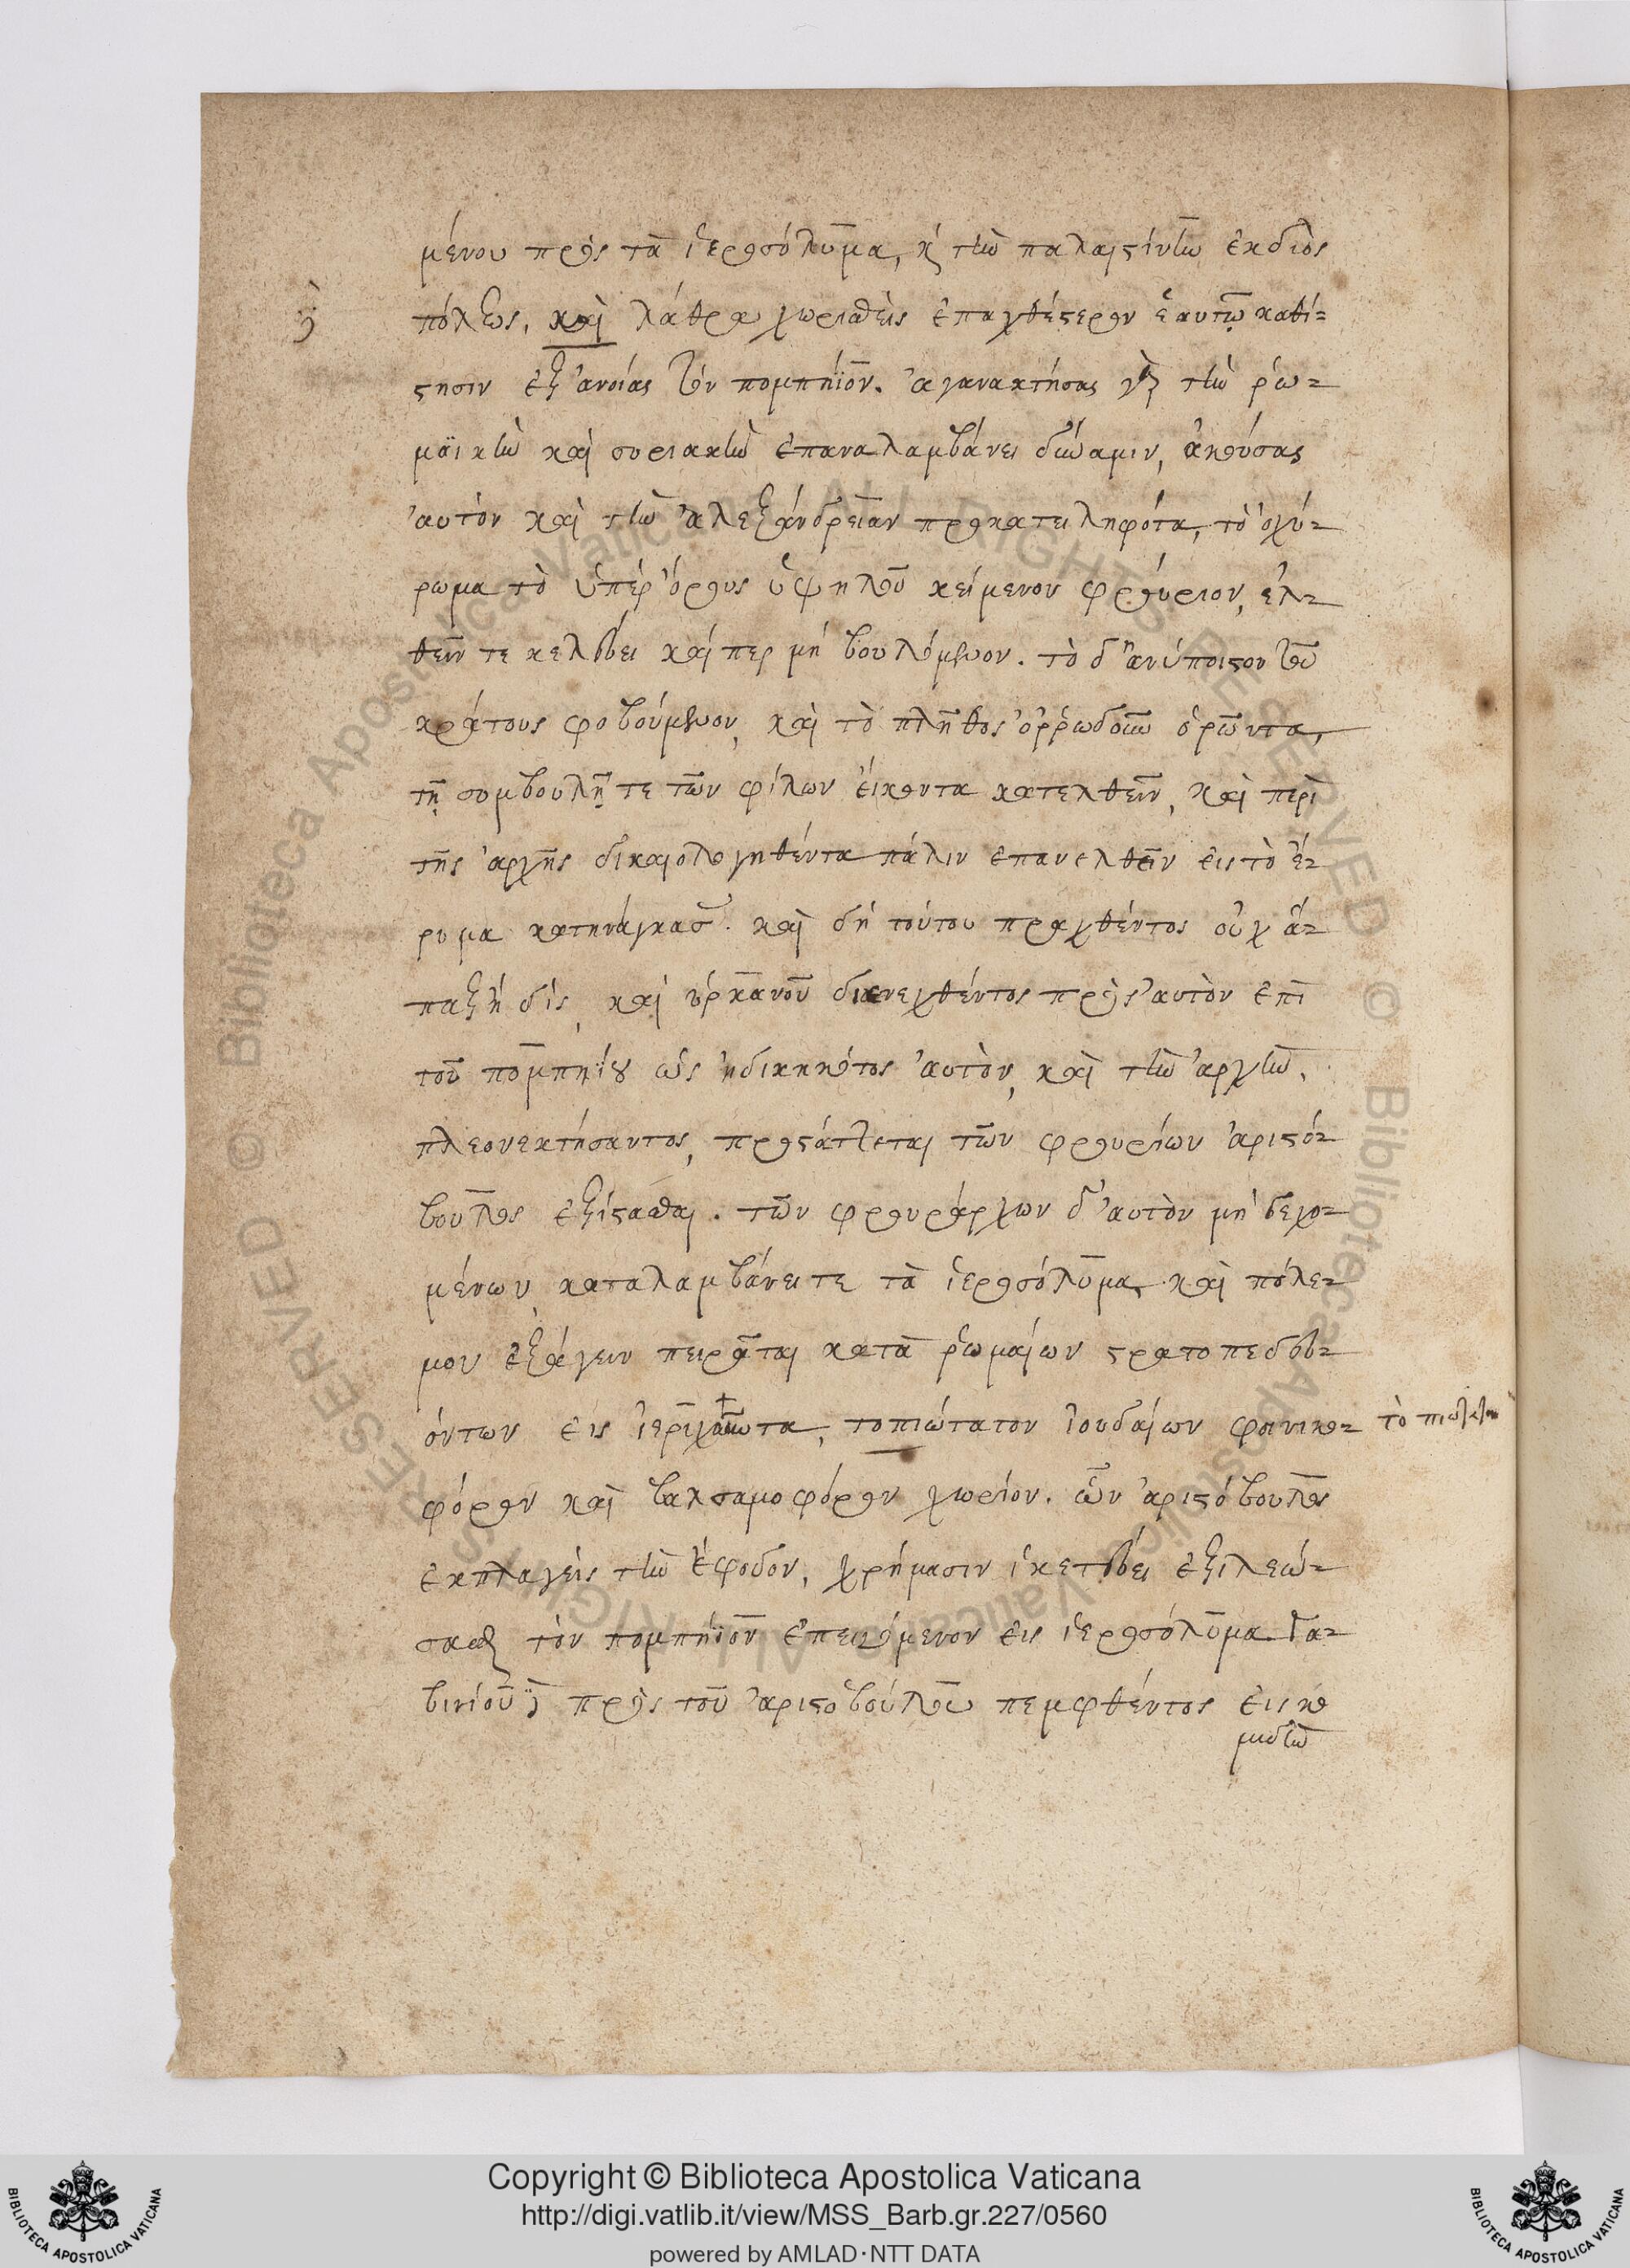 μένου πρὸς τὰ ἱεροσόλυμα, καὶ τὴν παλαιστίνην ἐκ διὸς
πόλεως, καὶ λάθρα χωρισθεὶς ἐπαχθέστερον ἑαυτῷ καθί-
στησιν ἐξ ἀνοίας τὸν πομπήϊον. ἀγανακτήσας γὰρ τὴν ῥω-
μαϊκὴν καὶ συριακὴν ἐπαναλαμβάνει δύναμιν, ἀκούσας
αὐτὸν καὶ τὴν ἀλεξάνδρειαν προκατειληφότα, τὸ ὀχύ-
ρωμα τὸ ὑπὲρ ὄρους ὑψηλοῦ κείμενον φρούριον, ἐλ-
θεῖν τε κελεύει καίπερ μὴ βουλόμενον. τὸ δ' ἀνύποιστον τοῦ
κράτους φοβούμενον, καὶ τὸ πλῆθος ὀρρωδοῦν ὁρῶντα,
τῇ συμβουλῇ τε τῶν φίλων εἴκοντα κατελθεῖν, καὶ περὶ
τῆς ἀρχῆς δικαιολογηθέντα πάλιν ἐπανελθεῖν εἰς τὸ ἔ-
ρυμα κατηνάγκασε. καὶ δὴ τούτου πραχθέντος οὐχ ἅ-
παξ ἢ δὶς, καὶ ὑρκανοῦ διενεχθέντος πρὸς αὐτὸν ἐπὶ
τοῦ πομπηΐου ὡς ἠδικηκότος αὐτὸν, καὶ τὴν ἀρχὴν,
πλεονεκτήσαντος, προστάττεται τῶν φρουρίων ἀριστό-
βουλος ἐξίστασθαι. τῶν φρουράρχων δ' αὐτὸν μὴ δεχο-
μένων, καταλαμβάνει τε τὰ ἱεροσόλυμα, καὶ πόλε-
μον ἐξάγειν πειρᾶται κατὰ ῥωμαίων στρατοπεδευ-
όντων εἰς ἱεριχοῦντα, το πιώτατον ἰουδαίων φοινικο-
φόρον καὶ βαλσαμοφόρον χωρίον. ὧν ἀριστόβουλος
ἐκπλαγεὶς τὴν ἔφοδον, χρήμασιν ἱκετεύει ἐξιλεώ-
σασθαι τὸν πομπήϊον ἐπειγόμενον εἰς ἱεροσόλυμα. Γα-
βινίου δὲ πρὸς τοῦ ἀριστοβούλου πεμφθέντος εἰς κο
μιδὴν